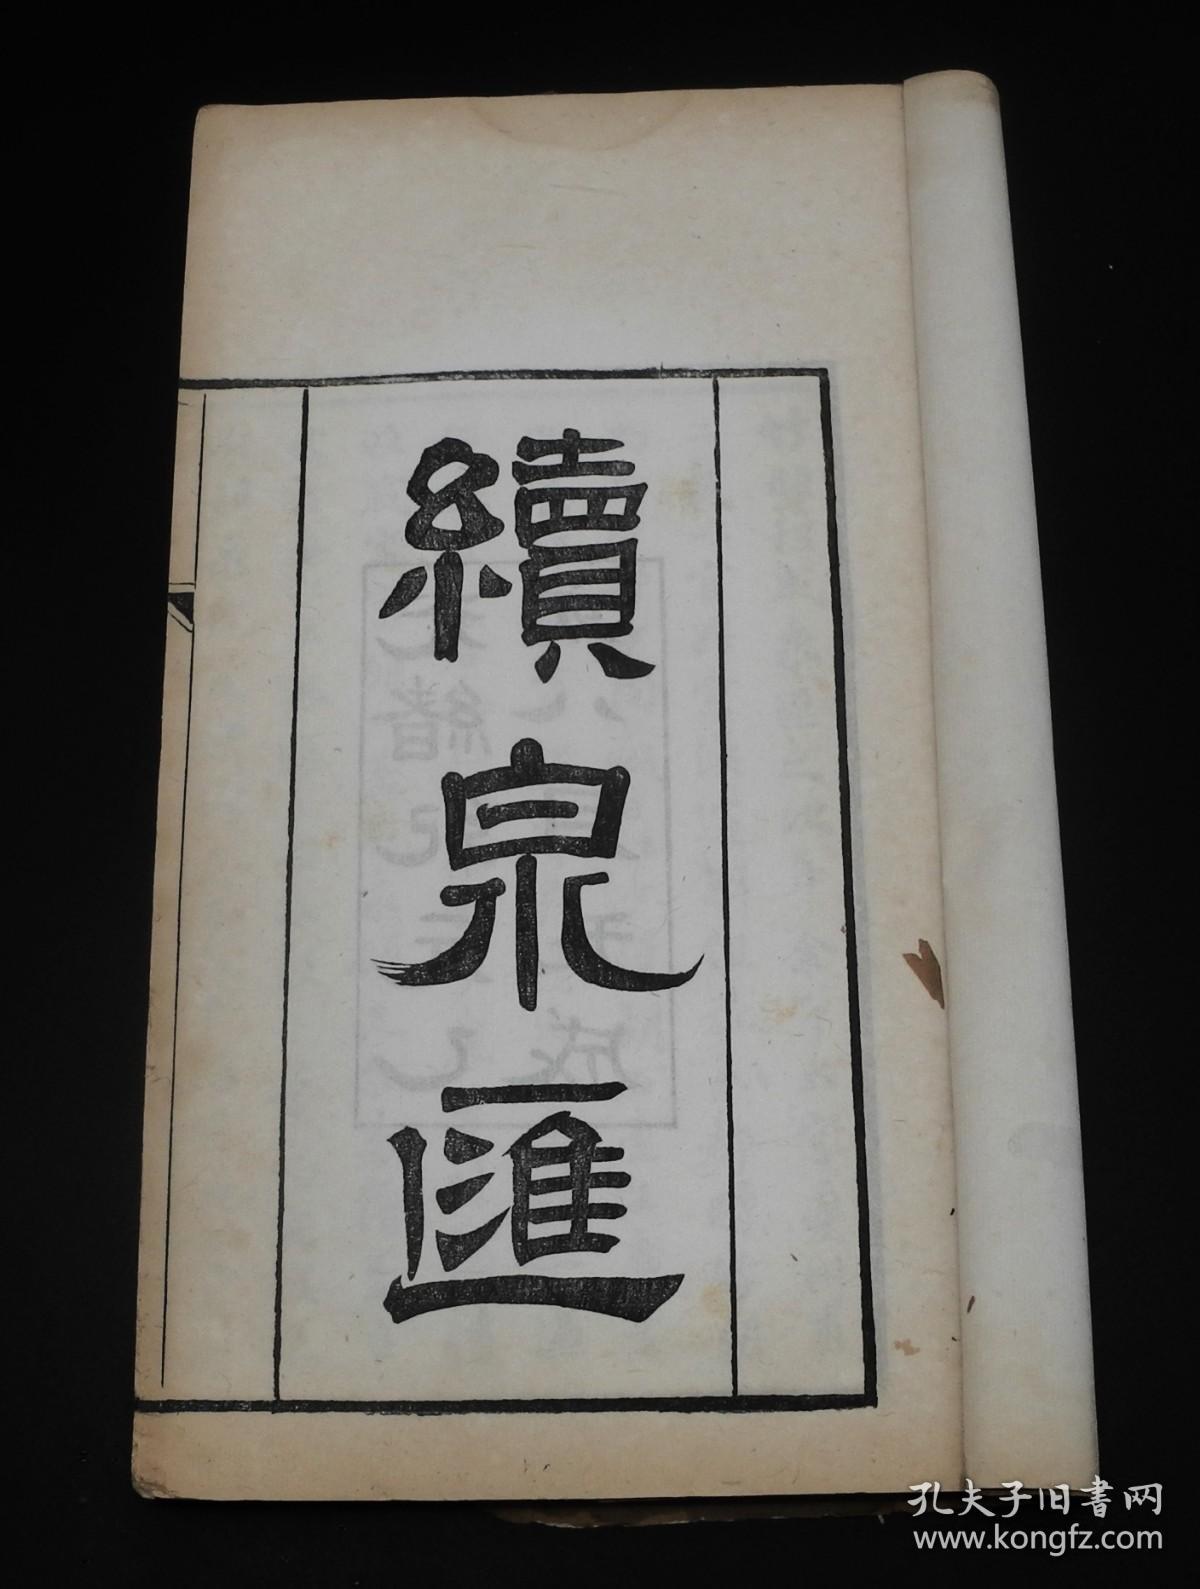 續泉匯
孔夫子旧書网
www.kongfz.com